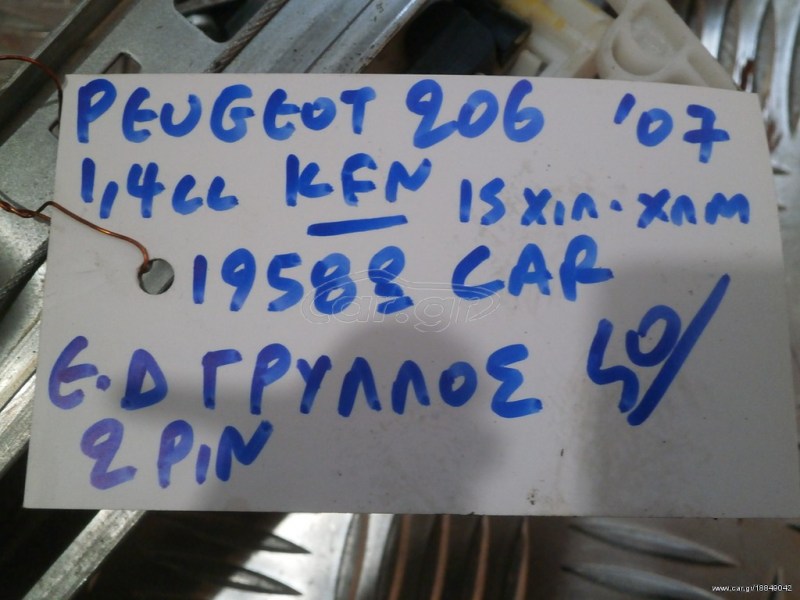 PEUGEOT 206 '07
1,4cc KFN 15 ΧΙΛ. ΧΛΜ
19582 CAR
Ε.Δ ΓΡΥΛΛΟΣ 40/
2 PIN
car.gr
www.car.gr/18849042